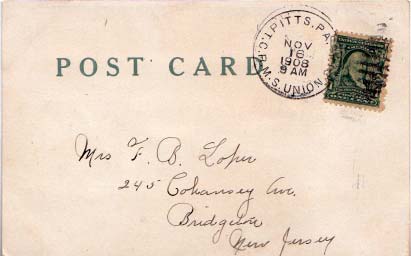 PITTS, PA.
NOV
16
1908
9 AM
R.M.S. UNION
POST CARD
Mrs F. B. Loper
245 Cohansey Ave.
Bridgeton
New Jersey